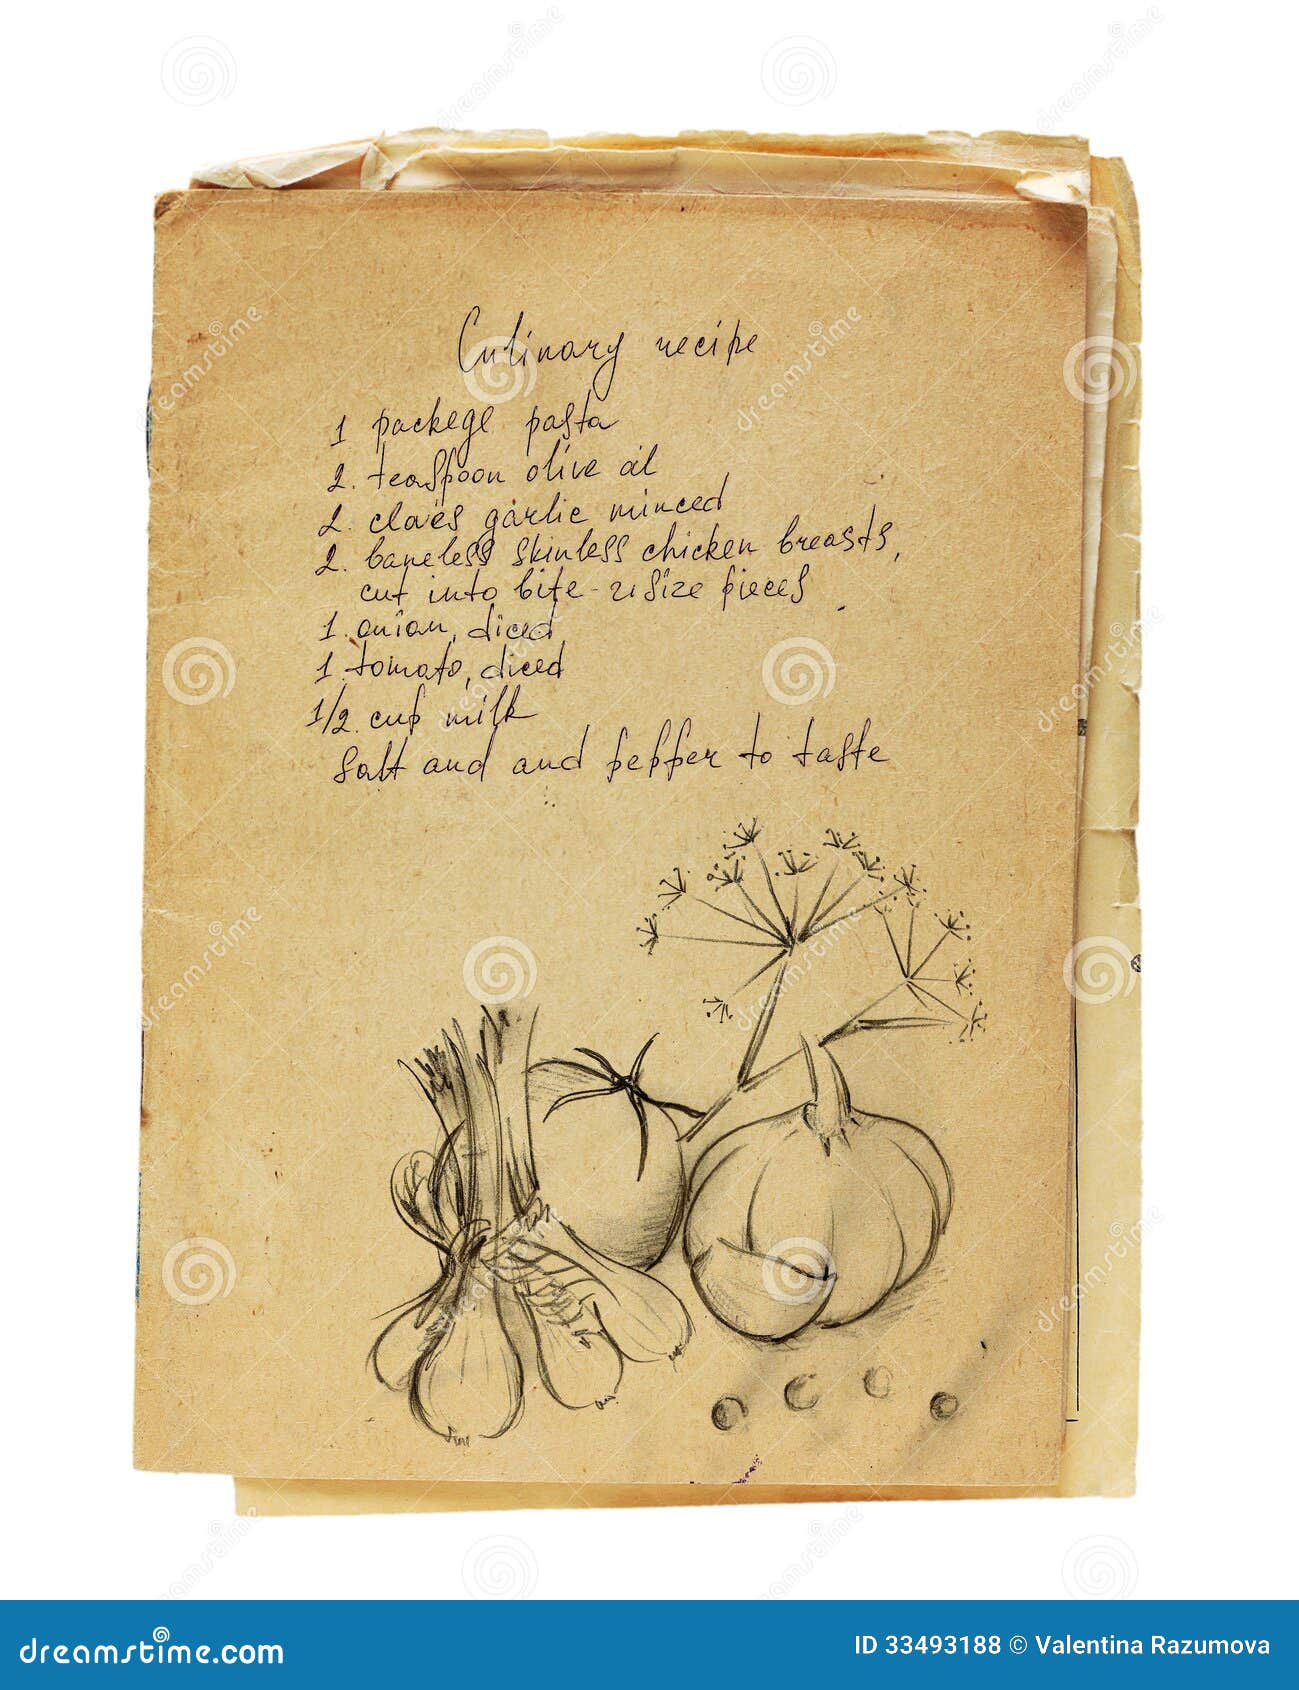 Culinary recipe
1 packege pasta
2. teaspoon olive oil
2. cloves garlic minced
2. boneless skinless chicken breasts,
cut into bite-size pieces
1. onion, diced
1. tomato, diced
1/2. cup milk
Salt and and pepper to taste
dreamstime.com
ID 33493188 © Valentina Razumova